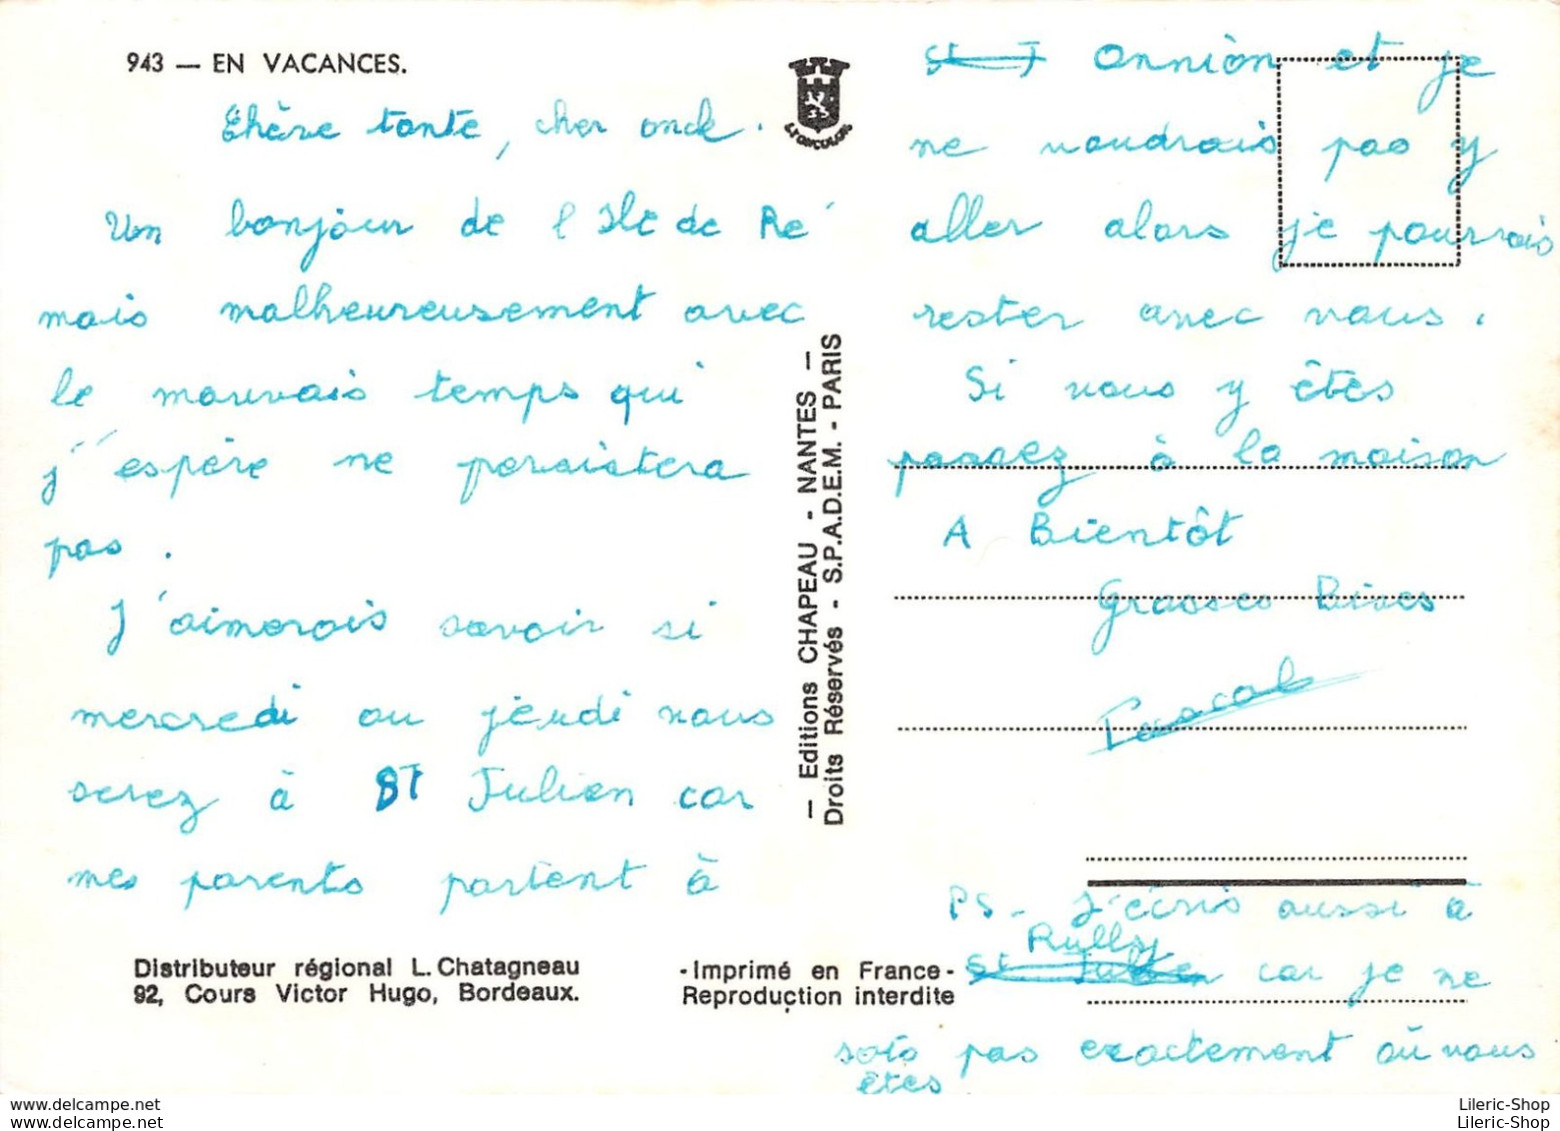 943 — EN VACANCES.
LYONCOLOR
Chère tante, cher oncle.
Un bonjour de l'Ile de Ré
mais malheureusement avec
le mauvais temps qui
j'espère ne persistera
pas.
J'aimerais savoir si
mercredi ou jeudi vous
serez à ST Julien car
mes parents partent à
Distributeur régional L. Chatagneau
92, Cours Victor Hugo, Bordeaux.
— Editions CHAPEAU - NANTES —
Droits Réservés - S.P.A.D.E.M. - PARIS
St J Onnion et je
ne voudrais pas y
aller alors je pourrais
rester avec vous.
Si vous y êtes
passez à la maison
A Bientôt
Grosses Bises
Pascal
PS - J'écris aussi à
Rully
St Julien car je ne
sais pas exactement où vous
êtes
-Imprimé en France-
Reproduction interdite
Lileric-Shop
943
Lileric-Shop
Lileric-Shop
943
Lileric-Shop